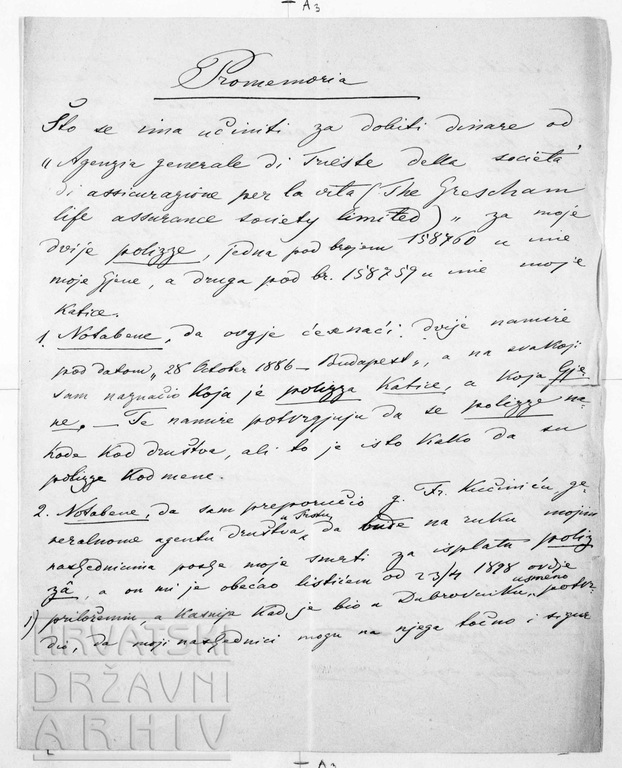 A3
Promemoria
Što se ima učiniti za dobiti dinare od
„Agenzia generale di Trieste della società
di assicurazione per la vita (The Grescham
life assurance society limited)„ za moje
dvije polizze, jedna pod brojem 158760 u ime
moje Gjene, a druga pod br. 158759 u ime moje
Katice.
1. Notabene, da ovgje ćeš naći: dvije namire
pod datom „28 October 1886 – Budapest„, a na svakoj
sam naznačio koja je polizza Katice, a koja Gje
ne, – Te namire potvrgjuju da se polizze na-
hode kod društva, ali to je isto kako da su
polizze kod mene.
2. Notabene, da sam preporučio g. Fr. Kučiniću ge-
neralnome agentu društva u Trstu, da bude na ruku mojim
nasljednicima posge moje smrti za isplatu poliz
zâ, a on mi je obećao listićem od 23/4 1898 ovdje
1) priloženim, a kasnije kad je bio u Dubrovniku, usmeno potvr-
dio, da moji nasljednici mogu na njega točno i sigur
HRVATSKI
DRŽAVNI
ARHIV